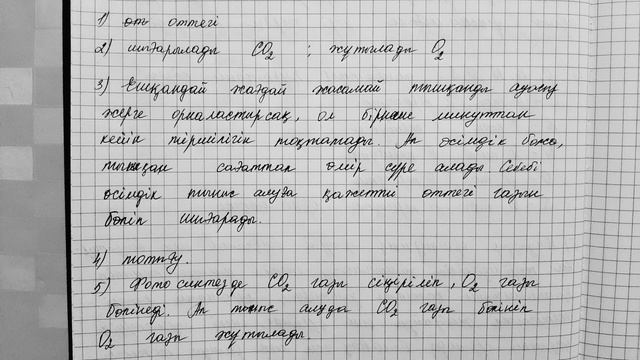 1) от оттегі
2) шығарылады CO2 ; жұтылады O2
3) Ешқандай жағдай жасамай тышқанды ауасыз
жерге орналастырсақ, ол бірнеше минуттан
кейін тіршілігін тоқтатады. Ал өсімдік болса,
тышқан сағаттап өмір сүре алады Себебі
өсімдік тыныс алуға қажетті оттегі газын
бөліп шығарады.
4) тотығу.
5) Фотосинтезде CO2 газы сіңіріліп, O2 газы
бөлінеді. Ал тыныс алуда CO2 газы бөлініп
O2 газы жұтылады.